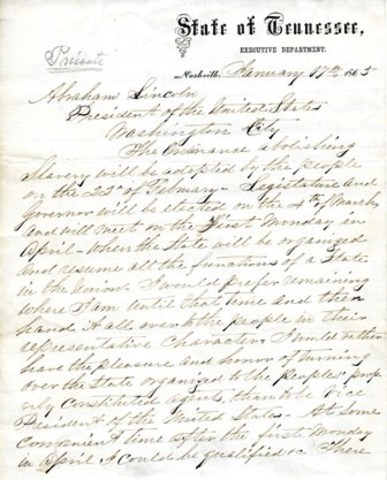 State of Tennessee,
EXECUTIVE DEPARTMENT.
Private
Nashville, January 17th 1865
Abraham Lincoln
President of the United States
Washington City
The Ordinance abolishing
Slavery will be adopted by the people
on the 22d of February - Legislature and
Governor will be elected on the 4th of March
and will meet on the first Monday in
April - when the State will be organized
and resume all the functions of a State
in the Union. I would prefer remaining
where I am until that time and then
hand it all over to the people in their
representative character. I would rather
have the pleasure and honor of turning
over the State organized to the peoples' prop
erly constituted agents, than to be Vice
President of the United States - At some
convenient time after the first Monday
in April I could be qualified &c There